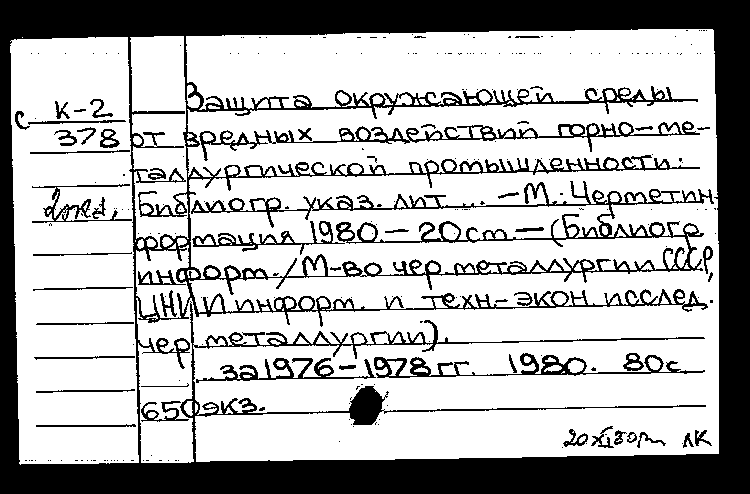 Защита окружающей среды
с К-2
378 от вредных воздействий горно-ме-
таллургической промышленности:
2 экз. Библиогр. указ. лит ... — М.: Черметин-
формация, 1980. — 20 см — (Библиогр
информ. / М-во чер металлургии СССР,
ЦНИИ информ. и техн-экон исслед.
чер металлургии).
... за 1976 – 1978 гг. 1980. 80 с
650 экз.
ЛК